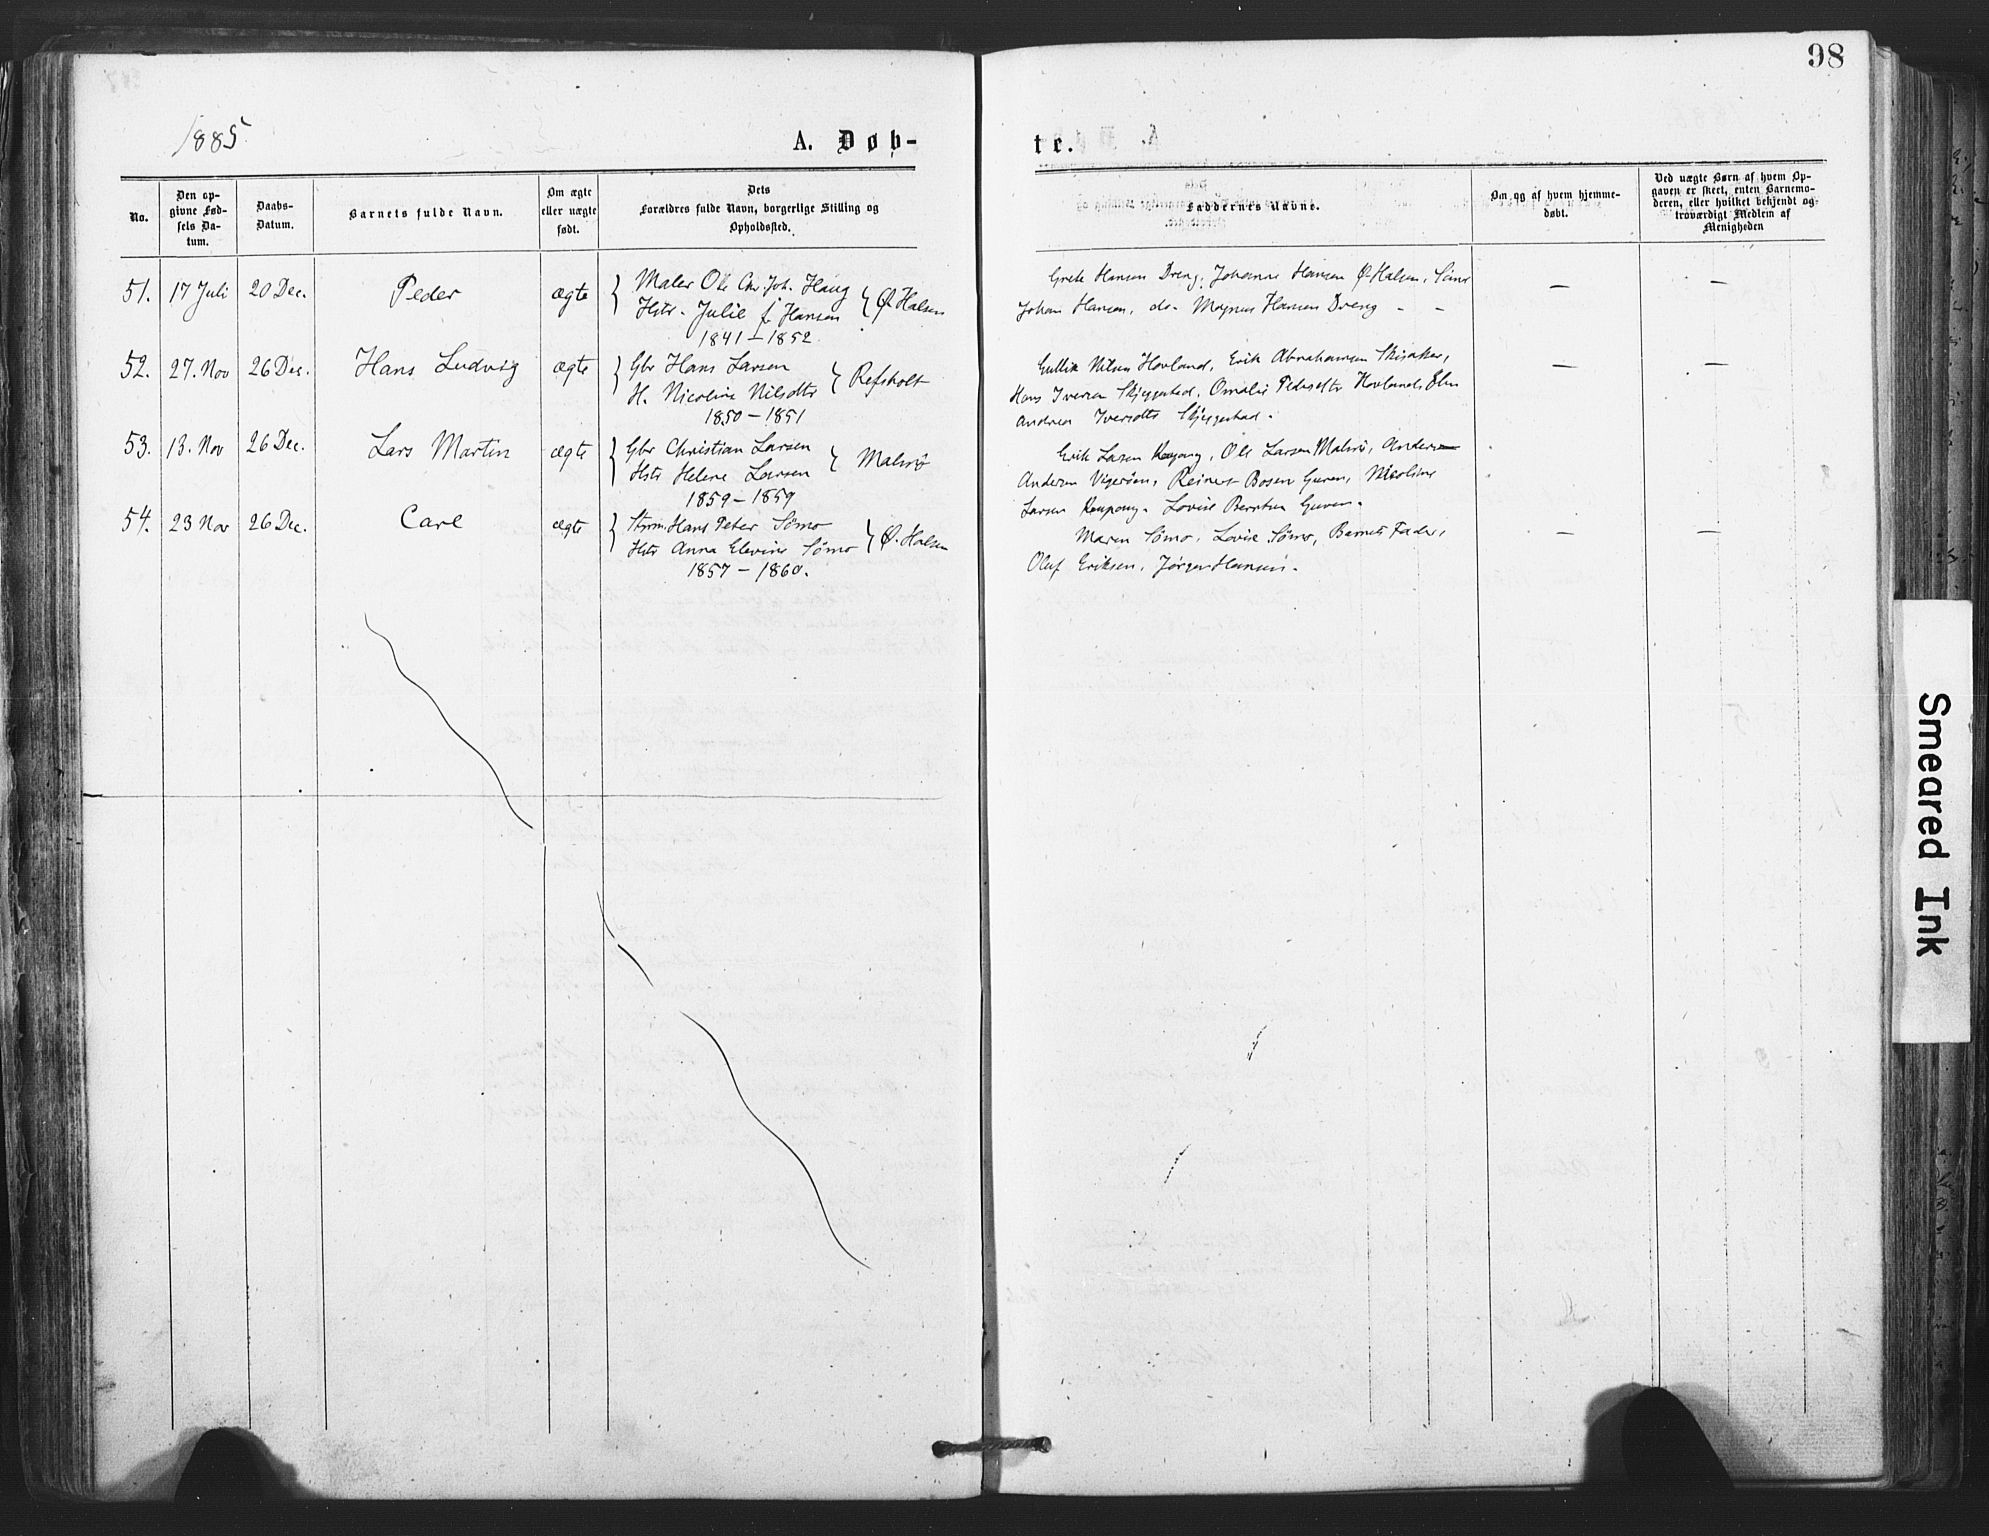 98
1885
A. Døb-
te.
No.
Den op-
givne Fød-
sels Da-
tum.
Daabs-
Datum.
Barnets fulde Navn.
Om ægte
eller uægte
født.
Dets
Forældres fulde Navn, borgerlige Stilling og
Opholdssted.
Faddernes Navne.
Om og af hvem hjemme-
døbt.
Ved uægte Børn af hvem Op-
gaven er skeet, enten Barnemo-
deren, eller hvilket bekjendt og
troværdigt Medlem af
Menigheden
51. 17 Juli 20 Dec. Peder ægte Maler Ole Chr. Joh. Haug
Hstr. Julie f. Hansen Ø. Halsen
1841 - 1852.
Grete Hansen Dreng, Johanne Hansen Ø. Halsen,
Johan Hansen, do - Magnus Hansen Dreng - -
52. 27. Nov 26 Dec. Hans Ludvig ægte Gbr Hans Larsen
H. Nicoline Nilsdtr Refsholt
1850 - 1851
Gullik Nilsen Hovland, Erik Abrahamsen
Hans Iversen Skjeggestad, Pedersdtr Hovland,
Andrea Iversdtr Skjeggestad.
53. 13. Nov 26 Dec. Lars Martin ægte Gbr Christian Larsen
Hstr Helene Larsen Malmø
1859 - 1859
Erik Larsen Kaupang, Ole Larsen Malmø,
Andersen, Reinert Bosen Guren, Nicoline
Larsen Kaupang. Lovise Guren.
54. 23 Nov 26 Dec. Carl ægte Styrm. Hans Peter Sømo
Hstr Anna Elevine Sømo Ø. Halsen
1857 - 1860.
Maren Sømo, Lovise Sømo, Barnets Fader,
Oluf Eriksen, Jørgen Hansen.
Smeared Ink